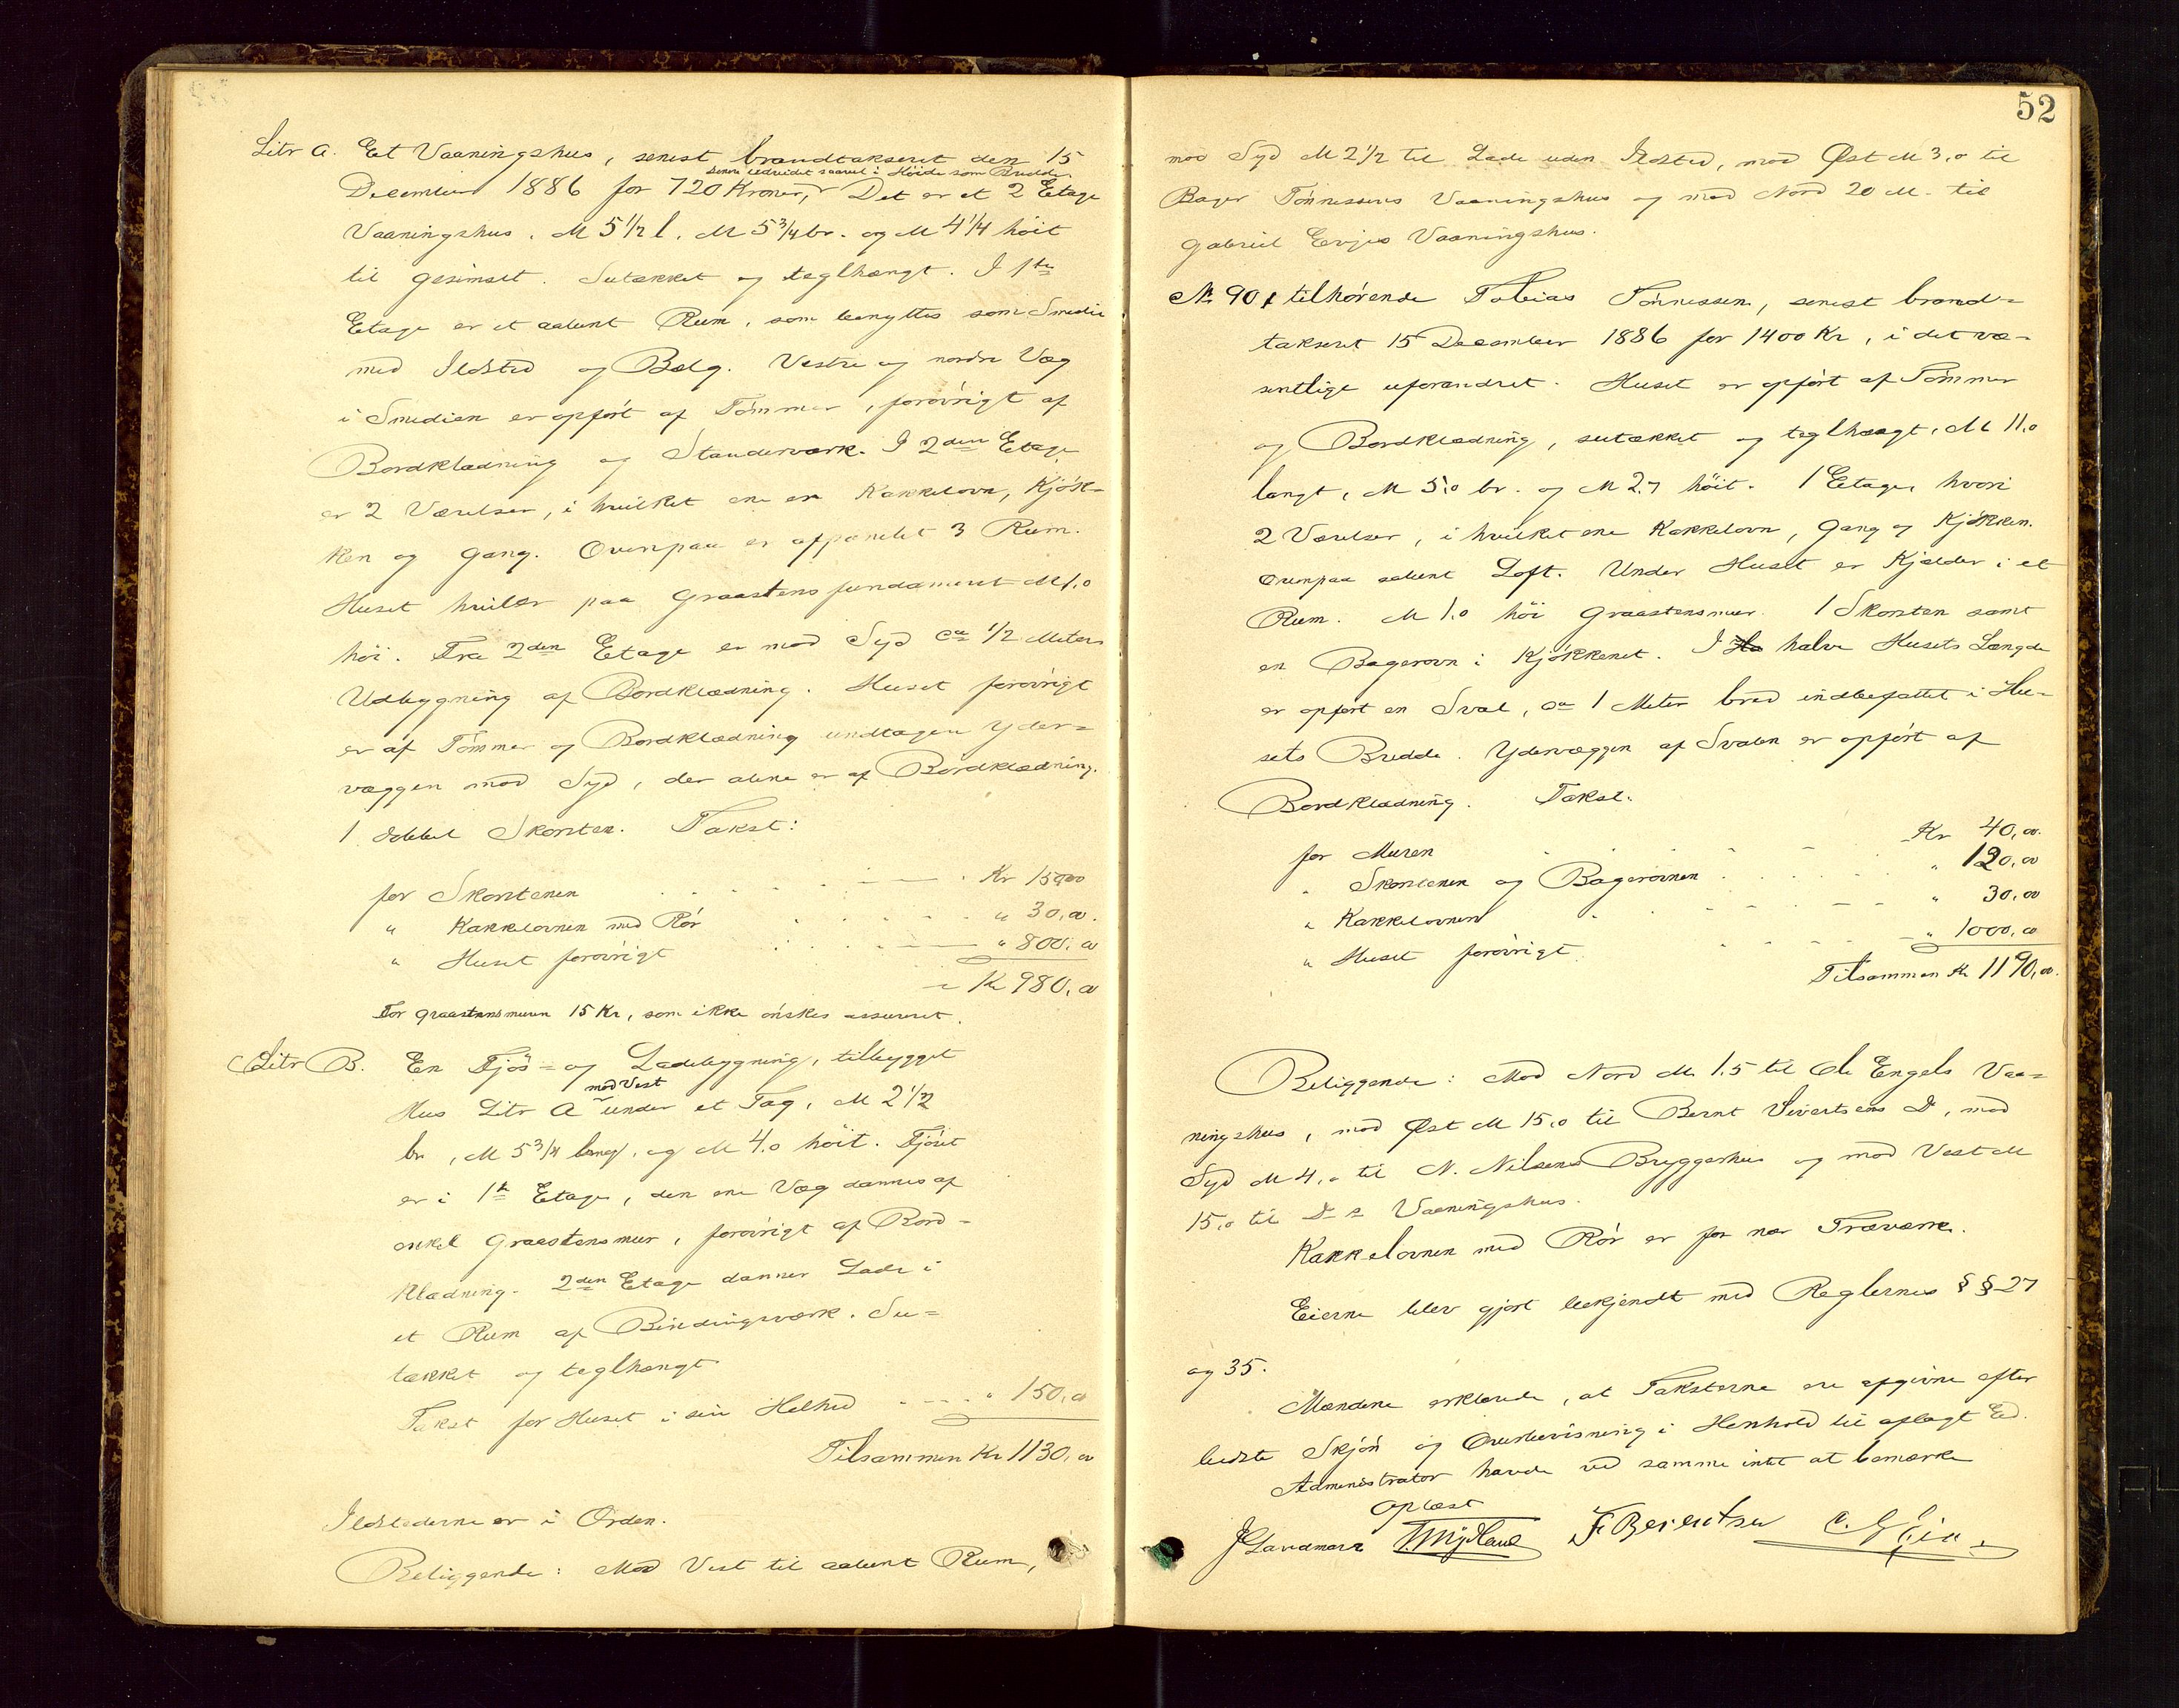 Litr A. Et Vaaningshus, senest brandtakseret den 15
senere udvidet saavel i Höide som Bredde.
December 1886 for 720 Kroner, Det er et 2 Etage
Vaaningshus. M 5 1/2 l. M 5 3/4 br. og M 4 1/4 höit
til Gesimset. Sutækket og teglhængt. I 1ste
Etage er et aabent Rum, som benyttes som Smedie
med Ildsted og Bælg. Vestre og nordre Væg
i Smedien er opfört af Tömmer, forövrigt af
Bordklædning og Standerværk. I 2den Etage
er 2 Værelser, i hvilket ene en Kakkelovn, Kjök-
ken og Gang. Ovenpaa er afpanelet 3 Rum.
Huset hviler paa Graastensfundament M 1,0
höi. Fra 2den Etage er mod Syd ca 1/2 Meters
Udbygning af Bordklædning. Huset forövrigt
er af Tömmer og Bordklædning undtagen Yder-
væggen mod Syd, der alene er af Bordklædning.
1 dobbel Skorsten. Takst:
for Skorstenen Kr 150,00
" Kakkelovnen med Rör " 30,00.
" Huset forövrigt " 800,00
Kr 980,00
For Graastensmuren 15 Kr, som ikke önskes assureret.
Litr B. En Fjös- og Ladebygning, tilbygget
mod Vest
Hus Litr A under et Tag, M 2 1/2
br, M 5 3/4 lang, og M 4,0 höit. Fjöset
er i 1ste Etage, den ene Væg dannes af
enkel Graastensmur, forövrigt af Bord-
klædning. 2den Etage danner Lade i
et Rum af Bindingsværk. Su-
tækket og teglhængt
Takst for Huset i sin Helhed " 150,00
Tilsammen Kr 1130,00
Ildstederne er i Orden.
Beliggende: Mod Vest til aabent Rum,
52
mod Syd M 2 1/2 til Lade uden Ildsted, mod Øst M 3,0 til
Bager Tönnessens Vaaningshus og mod Nord 20 M. til
Gabriel Evjes Vaaningshus.
No 90 tilhörende Tobias Tönnessen, senest brand-
takseret 15 December 1886 for 1400 Kr, i det væ-
sentlige uforandret. Huset er opfört af Tömmer
og Bordklædning, sutækket og teglhængt, M 11,0
langt, M 5,0 br. og M 2,7 höit. 1 Etage, hvori
2 Værelser, i hvilket ene Kakkelovn, Gang og Kjökken.
Ovenpaa aabent Loft. Under Huset er Kjælder i et
Rum. M 1,0 höi Graastensmur. 1 Skorsten samt
en Bagerovn i Kjökkenet. I halve Husets Længde
er opfört en Sval, ca 1 Meter bred indbefattet i Hu-
sets Bredde. Ydervæggen af Svalen er opfört af
Bordklædning. Takst:
for Muren Kr 40,00.
" Skorstenen og Bagerovnen " 120,00
" Kakkelovnen " 30,00
" Huset forövrigt " 1000,00
Tilsammen Kr 1190,00.
Beliggende: Mod Nord M 1,5 til Ole Engels Vaa-
ningshus, mod Øst M 15,0 til Bernt Sivertsens Do, mod
Syd M 4,0 til N. Nilsens Bryggerhus og mod Vest M
15,0 til Ds Vaaningshus.
Kakkelovnen med Rör er for nær Træværk.
Eierne blev gjort bekjendt med Reglernes §§ 27
og 35.
Mændene erklærede, at Taksterne ere afgivne efter
bedste Skjön og Overbevisning i Henhold til aflagt Ed.
Administrator havde ved samme intet at bemærke
Oplæst
F Berentsen